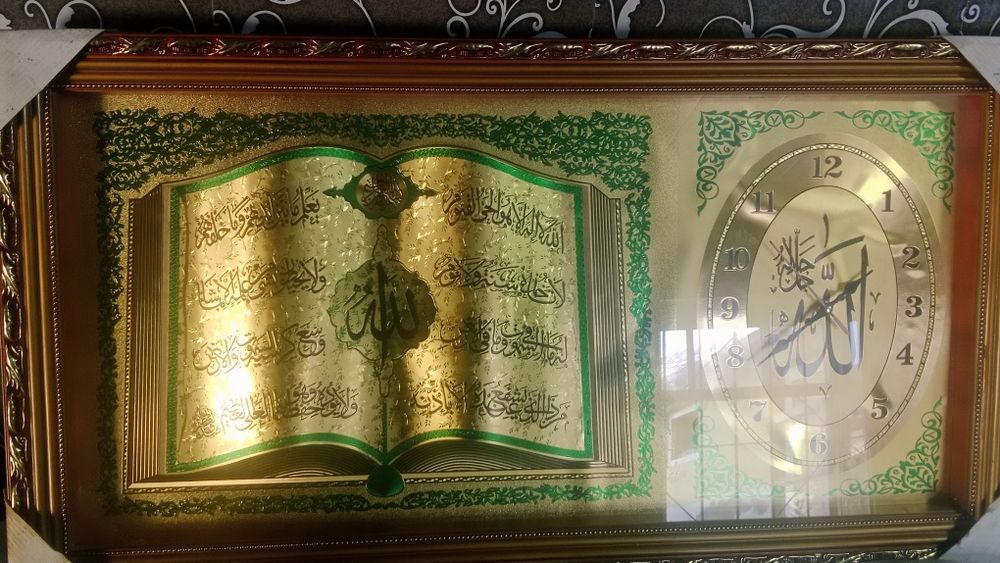 الله لا إله إلا هو الحي القيوم
لا تأخذه سنة ولا نوم
له ما في السموات وما في الأرض
من ذا الذي يشفع عنده إلا بإذنه
يعلم ما بين أيديهم وما خلفهم
ولا يحيطون بشيء من علمه إلا بما شاء
وسع كرسيه السموات والأرض
ولا يؤده حفظهما وهو العلي العظيم
الله
الله جل جلاله
12
1
2
3
4
5
6
7
8
9
10
11